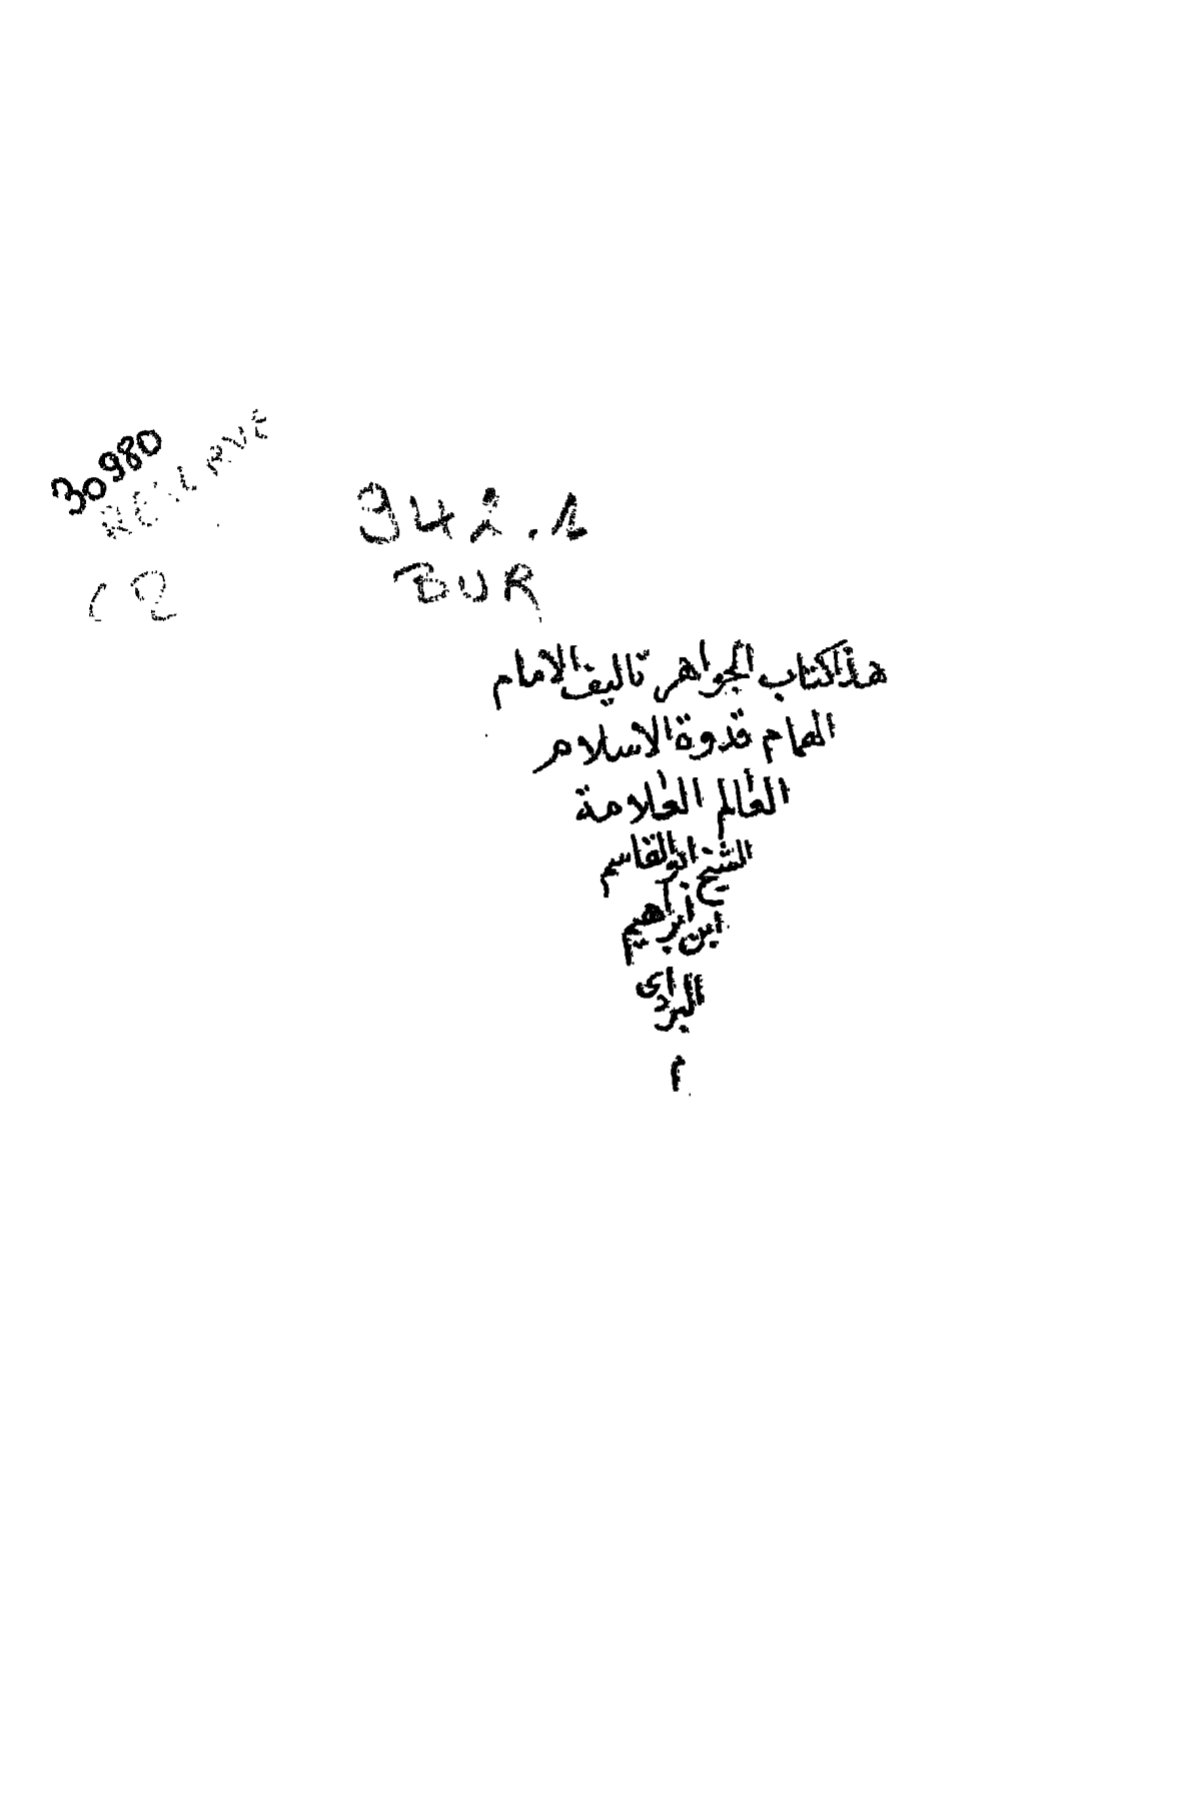 30980
RESERVE
942.1
BUR
هذا كتاب الجواهر تاليف الامام
الهمام قدوة الاسلام
العالم العلامة
الشيخ ابو القاسم
ابن ابراهيم
البرادى
م